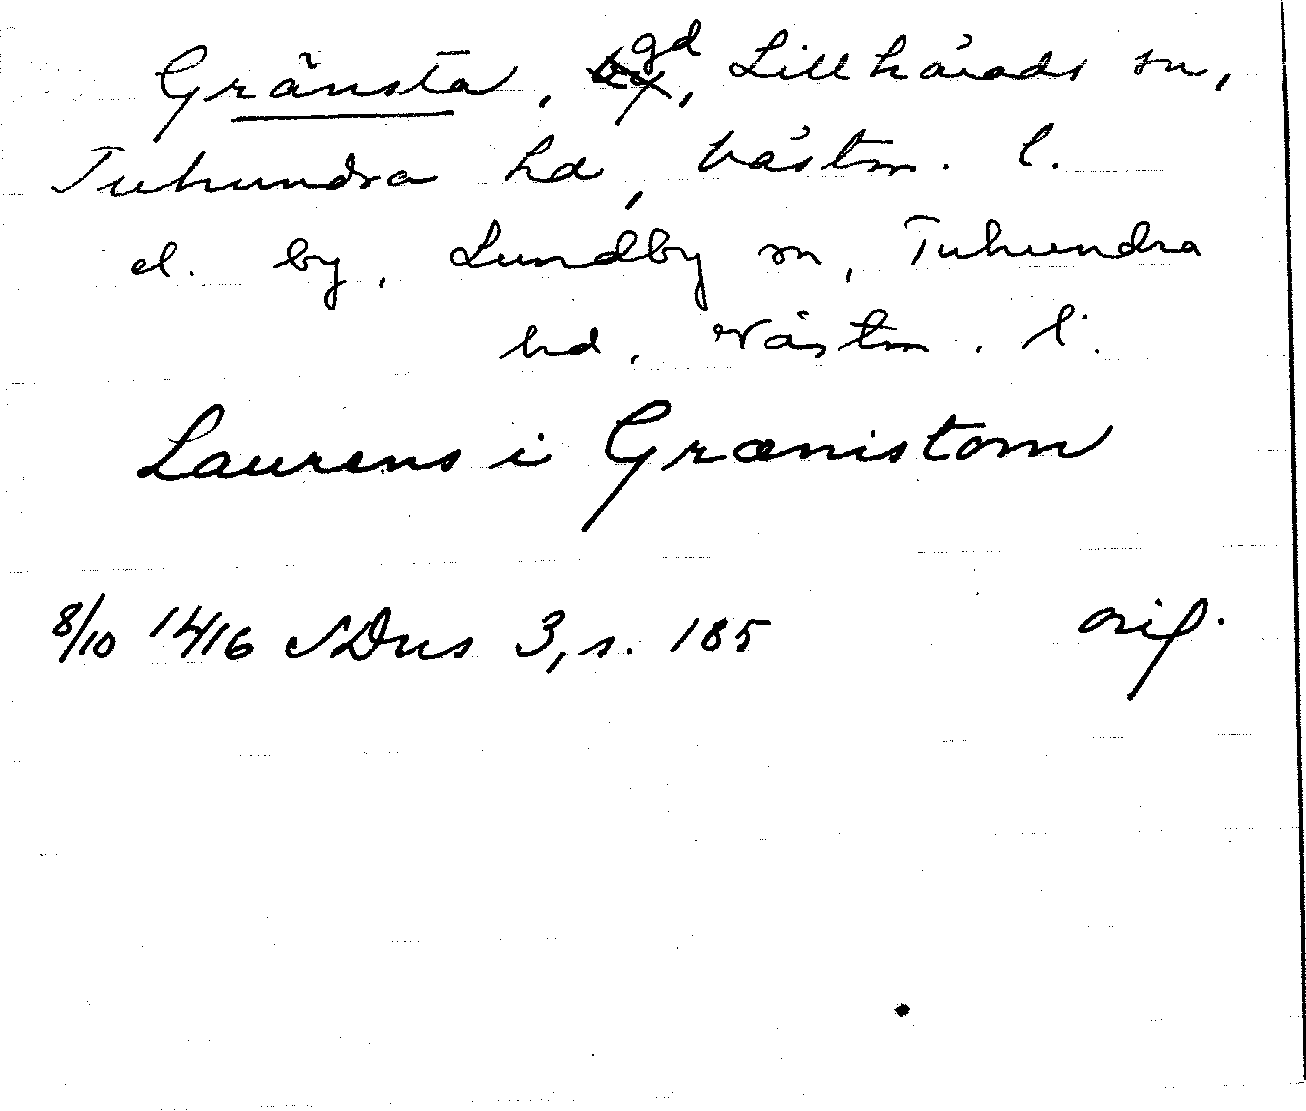 Gränsta, gd, Lillhärads sn,
Tuhundra hd, Västm. l.
el. by, Lundby sn, Tuhundra
hd. Västm. l.
Laurens i Grænistom
8/10 1416 SDns 3, s. 185 orig.